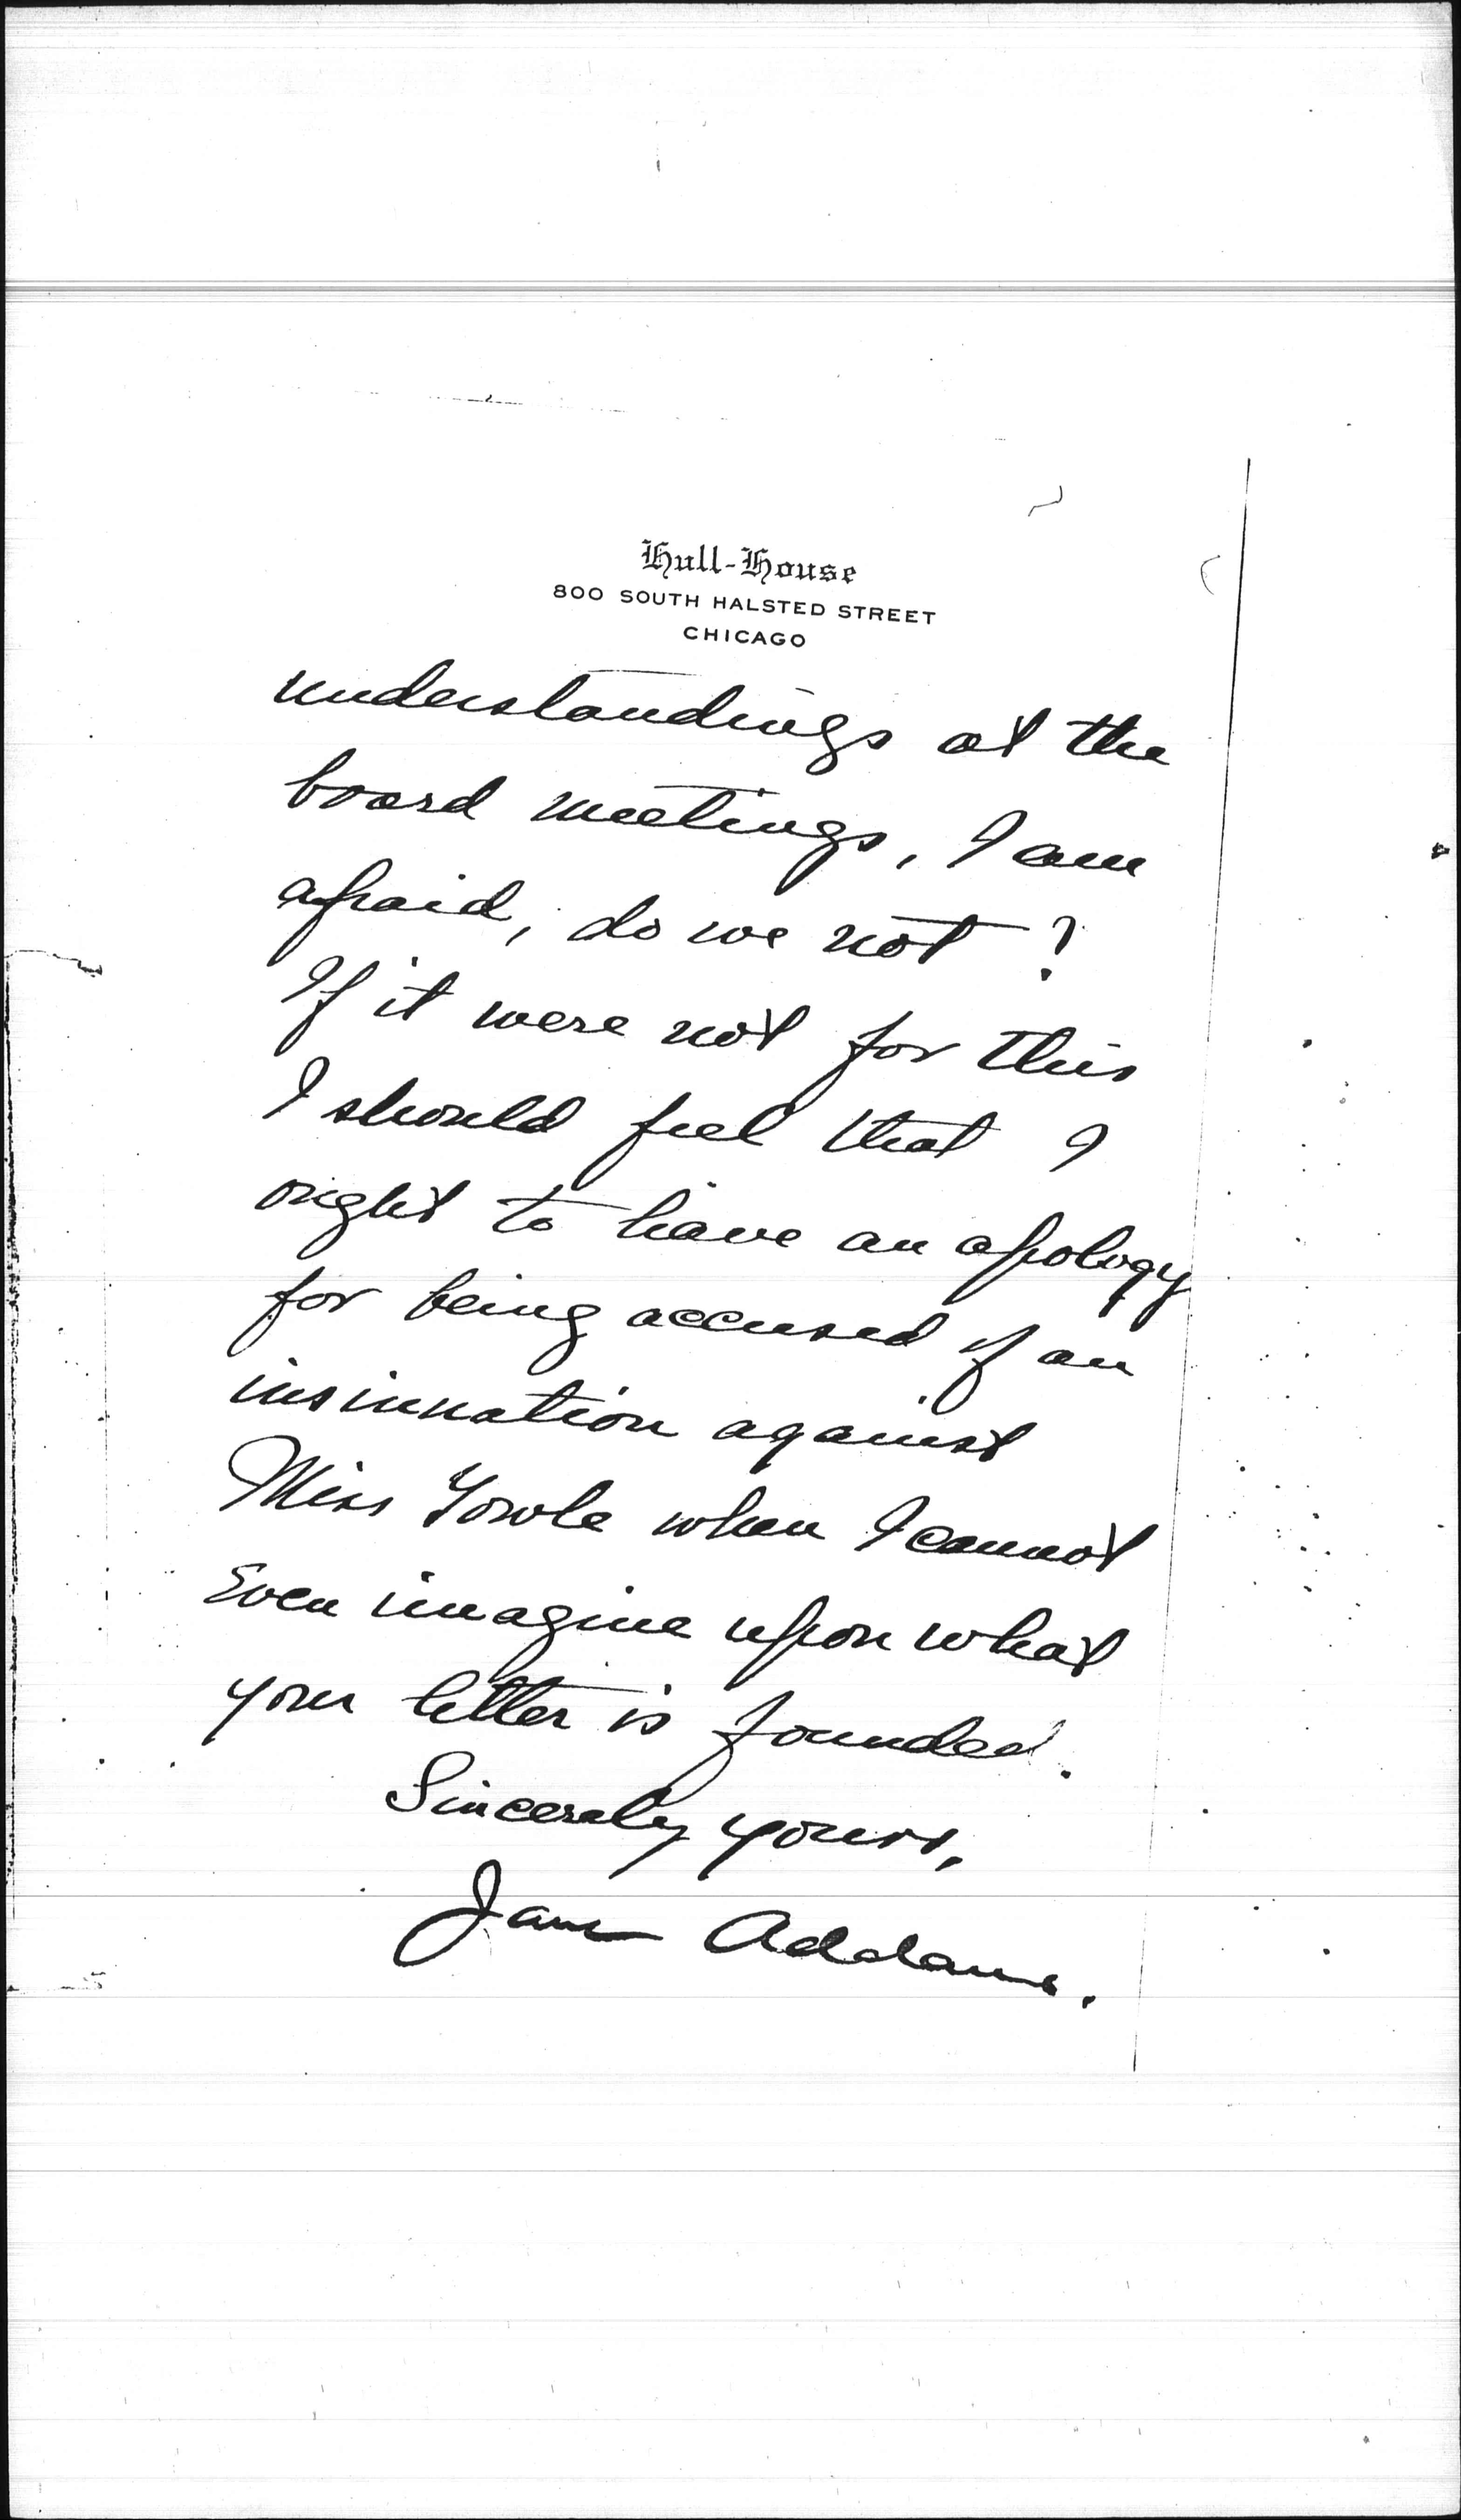 Hull-House
800 SOUTH HALSTED STREET
CHICAGO
understandings at the
board meetings, I am
afraid, do we not?
If it were not for this
I should feel that I
ought to have an apology
for being accused of an
insinuation against
Miss Yowle when I cannot
even imagine upon what
your letter is founded.
Sincerely yours,
Jane Addams.